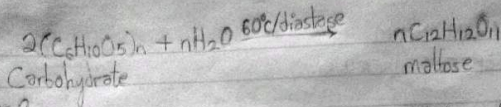 2(C6H10O5)n + nH2O 60°c/diastase nC12H12O11
Carbohydrate maltose